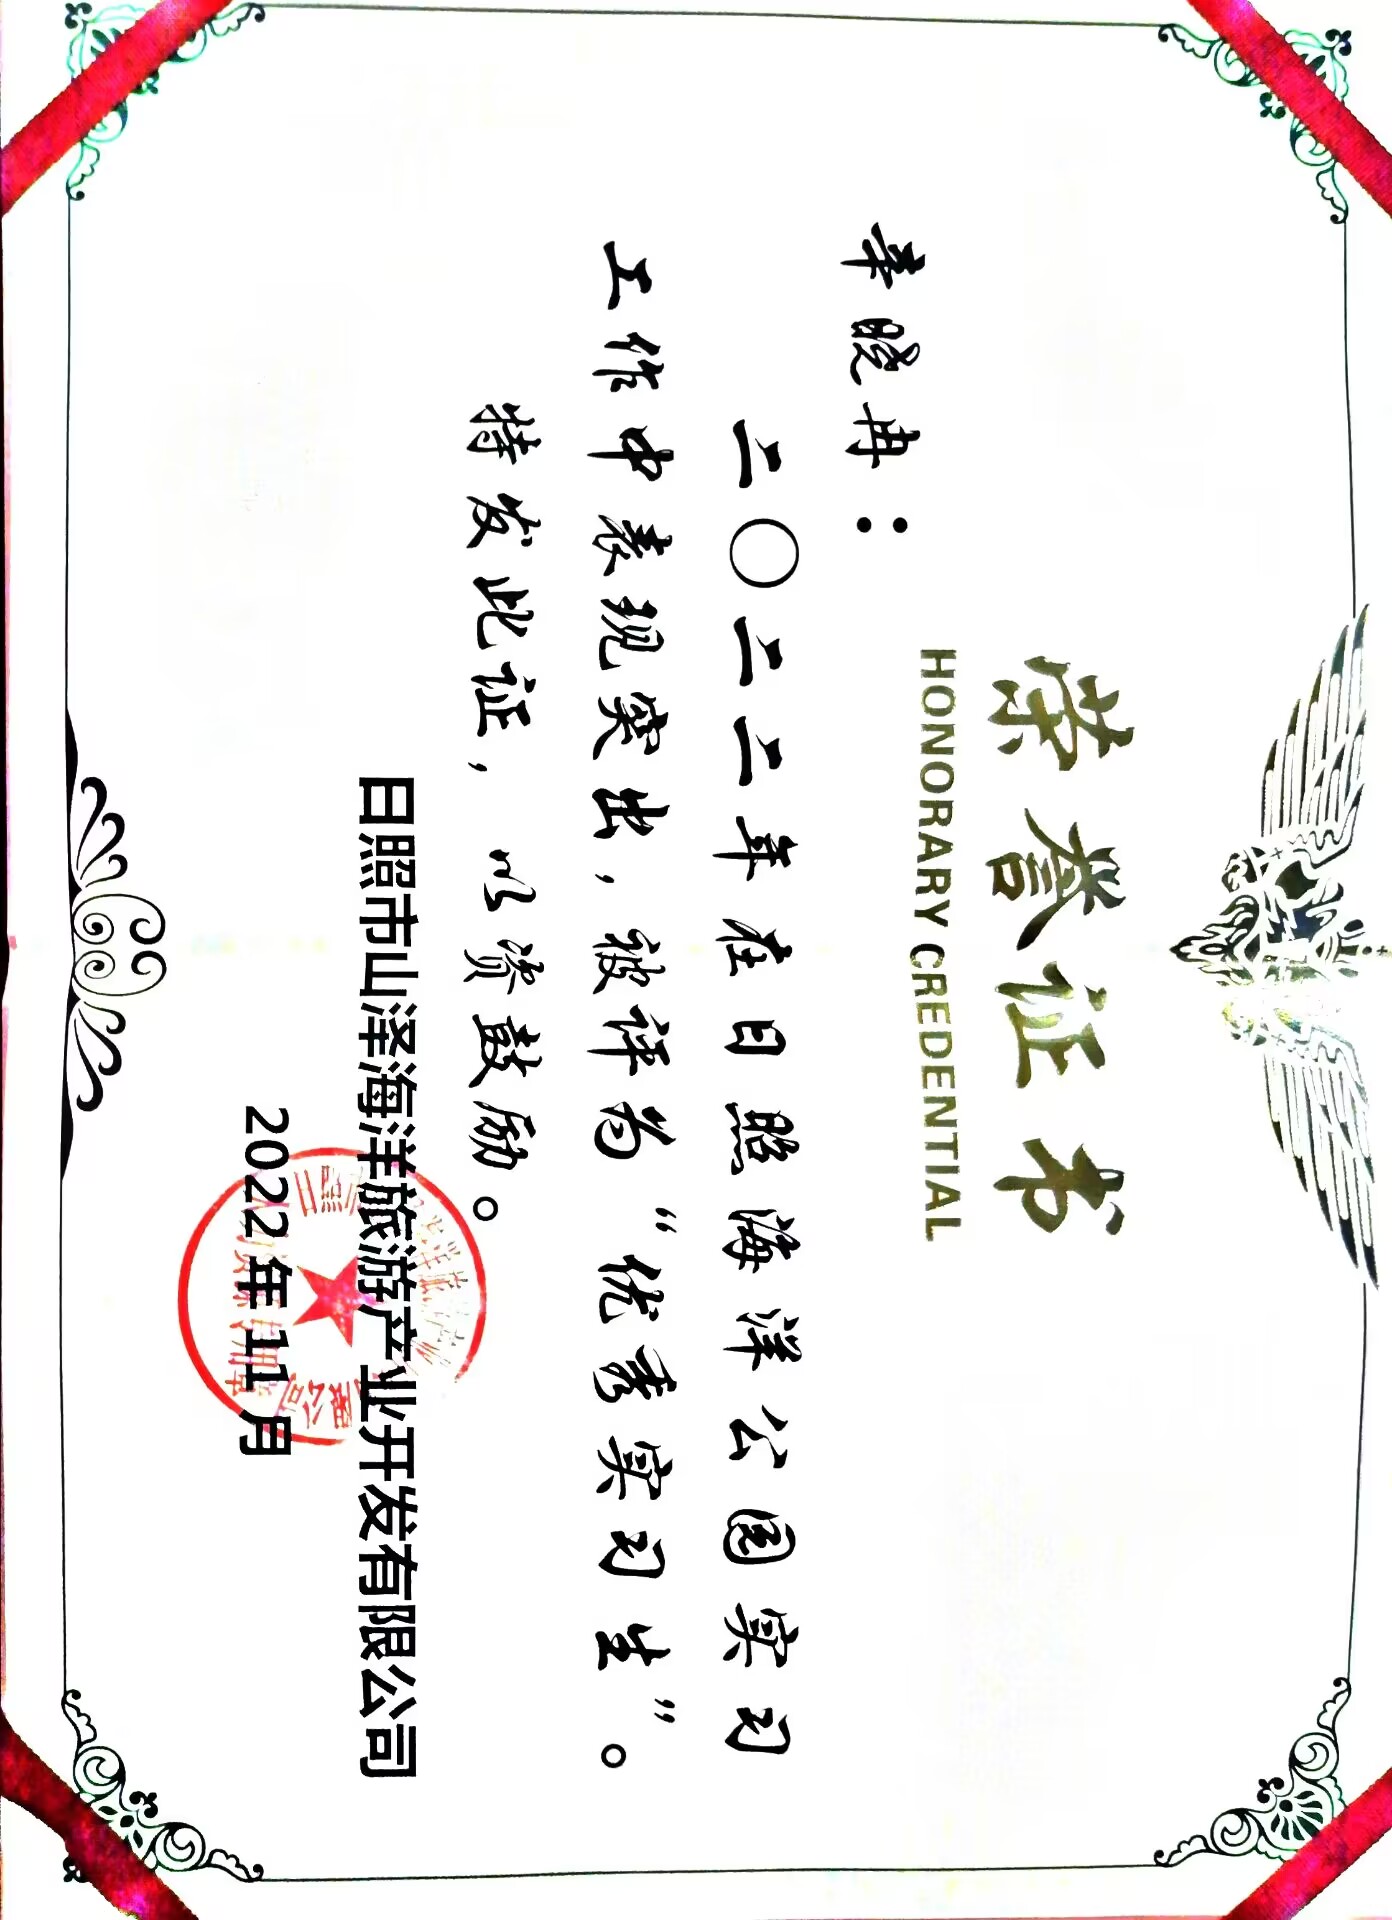 荣誉证书
HONORARY CREDENTIAL
辛晓冉：
二〇二二年在日照海洋公园实习
工作中表现突出，被评为“优秀实习生”。
特发此证，以资鼓励。
日照市山泽海洋旅游产业开发有限公司
2022年11月